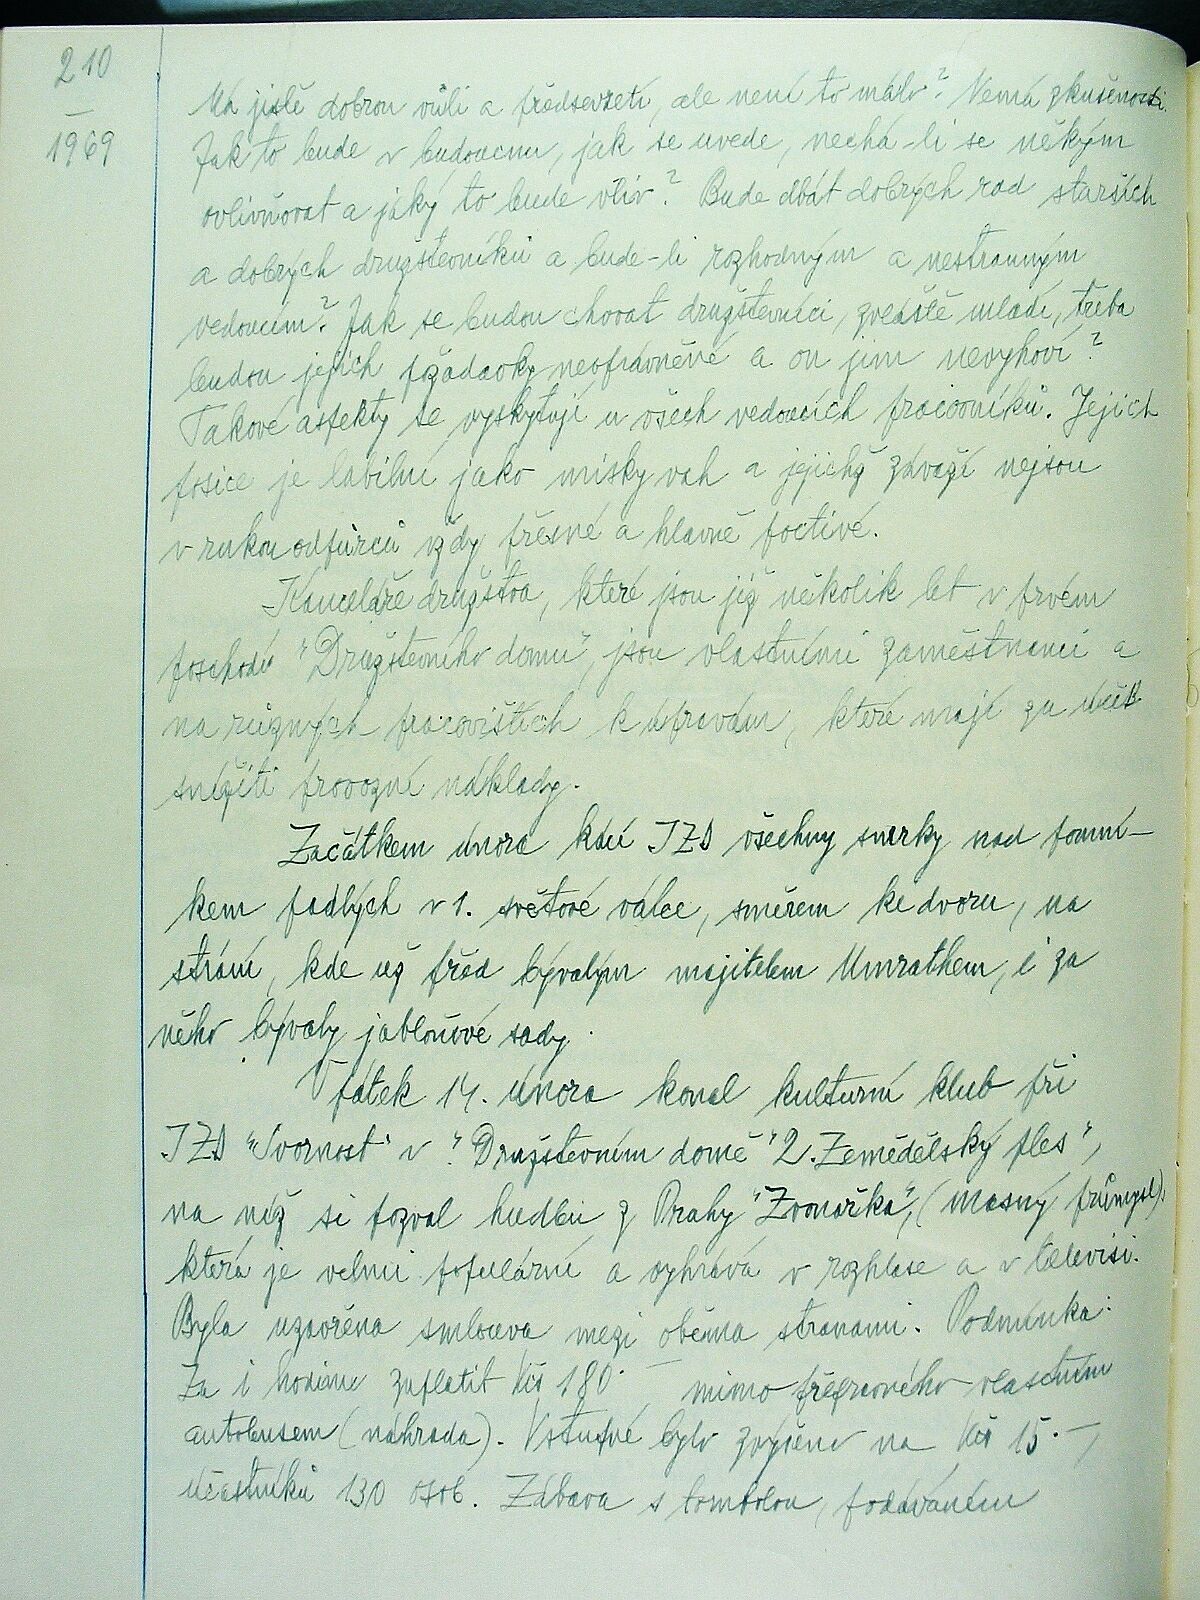 210
—
1969
Má jistě dobrou vůli a předsevzetí, ale není to málo? Nemá zkušenosti.
Jak to bude v budoucnu, jak se uvede, nechá-li se někým
ovlivňovat a jáký to bude vliv? Bude dbát dobrých rad starších
a dobrých družstevníků a bude-li rozhodným a nestranným
vedoucím? Jak se budou chovat družstevníci, zvláště mladí, třeba
budou jejich požadavky neoprávněné a on jim nevyhoví?
Takové aspekty se vyskytují u všech vedoucích pracovníků. Jejich
posice je labilní jako misky vah a jejichž závaží nejsou
v rukou odpůrců vždy přesné a hlavně poctivé.
Kanceláře družstva, které jsou již několik let v prvém
poschodí "Družstevního domu", jsou vlastními zaměstnanci a
na různých pracovištích k úpravám, které mají za účel
snížiti provozní náklady.
Začátkem února kácí JZD všechny smrky nad pomní-
kem padlých v 1. světové válce, směrem ke dvoru, na
stráni, kde už před bývalým majitelem Umrathem, i za
něho bývaly jabloňové sady.
V pátek 14. února konal kulturní klub při
JZD "Svornost" v "Družstevním domě" "2. Zemědělský ples",
na nějž si pozval hudbu z Prahy "Zvonařka", (masný průmysl).
která je velmi populární a vyhrává v rozhlase a v televisi.
Byla uzavřena smlouva mezi oběma stranami. Podmínka:
Za 1 hodinu zaplatit Kčs 180.— mimo přepravného vlastním
autobusem (náhrada). Vstupné bylo zvýšeno na Kčs 15.—,
účastníků 130 osob. Zábava s tombolou, podáváním